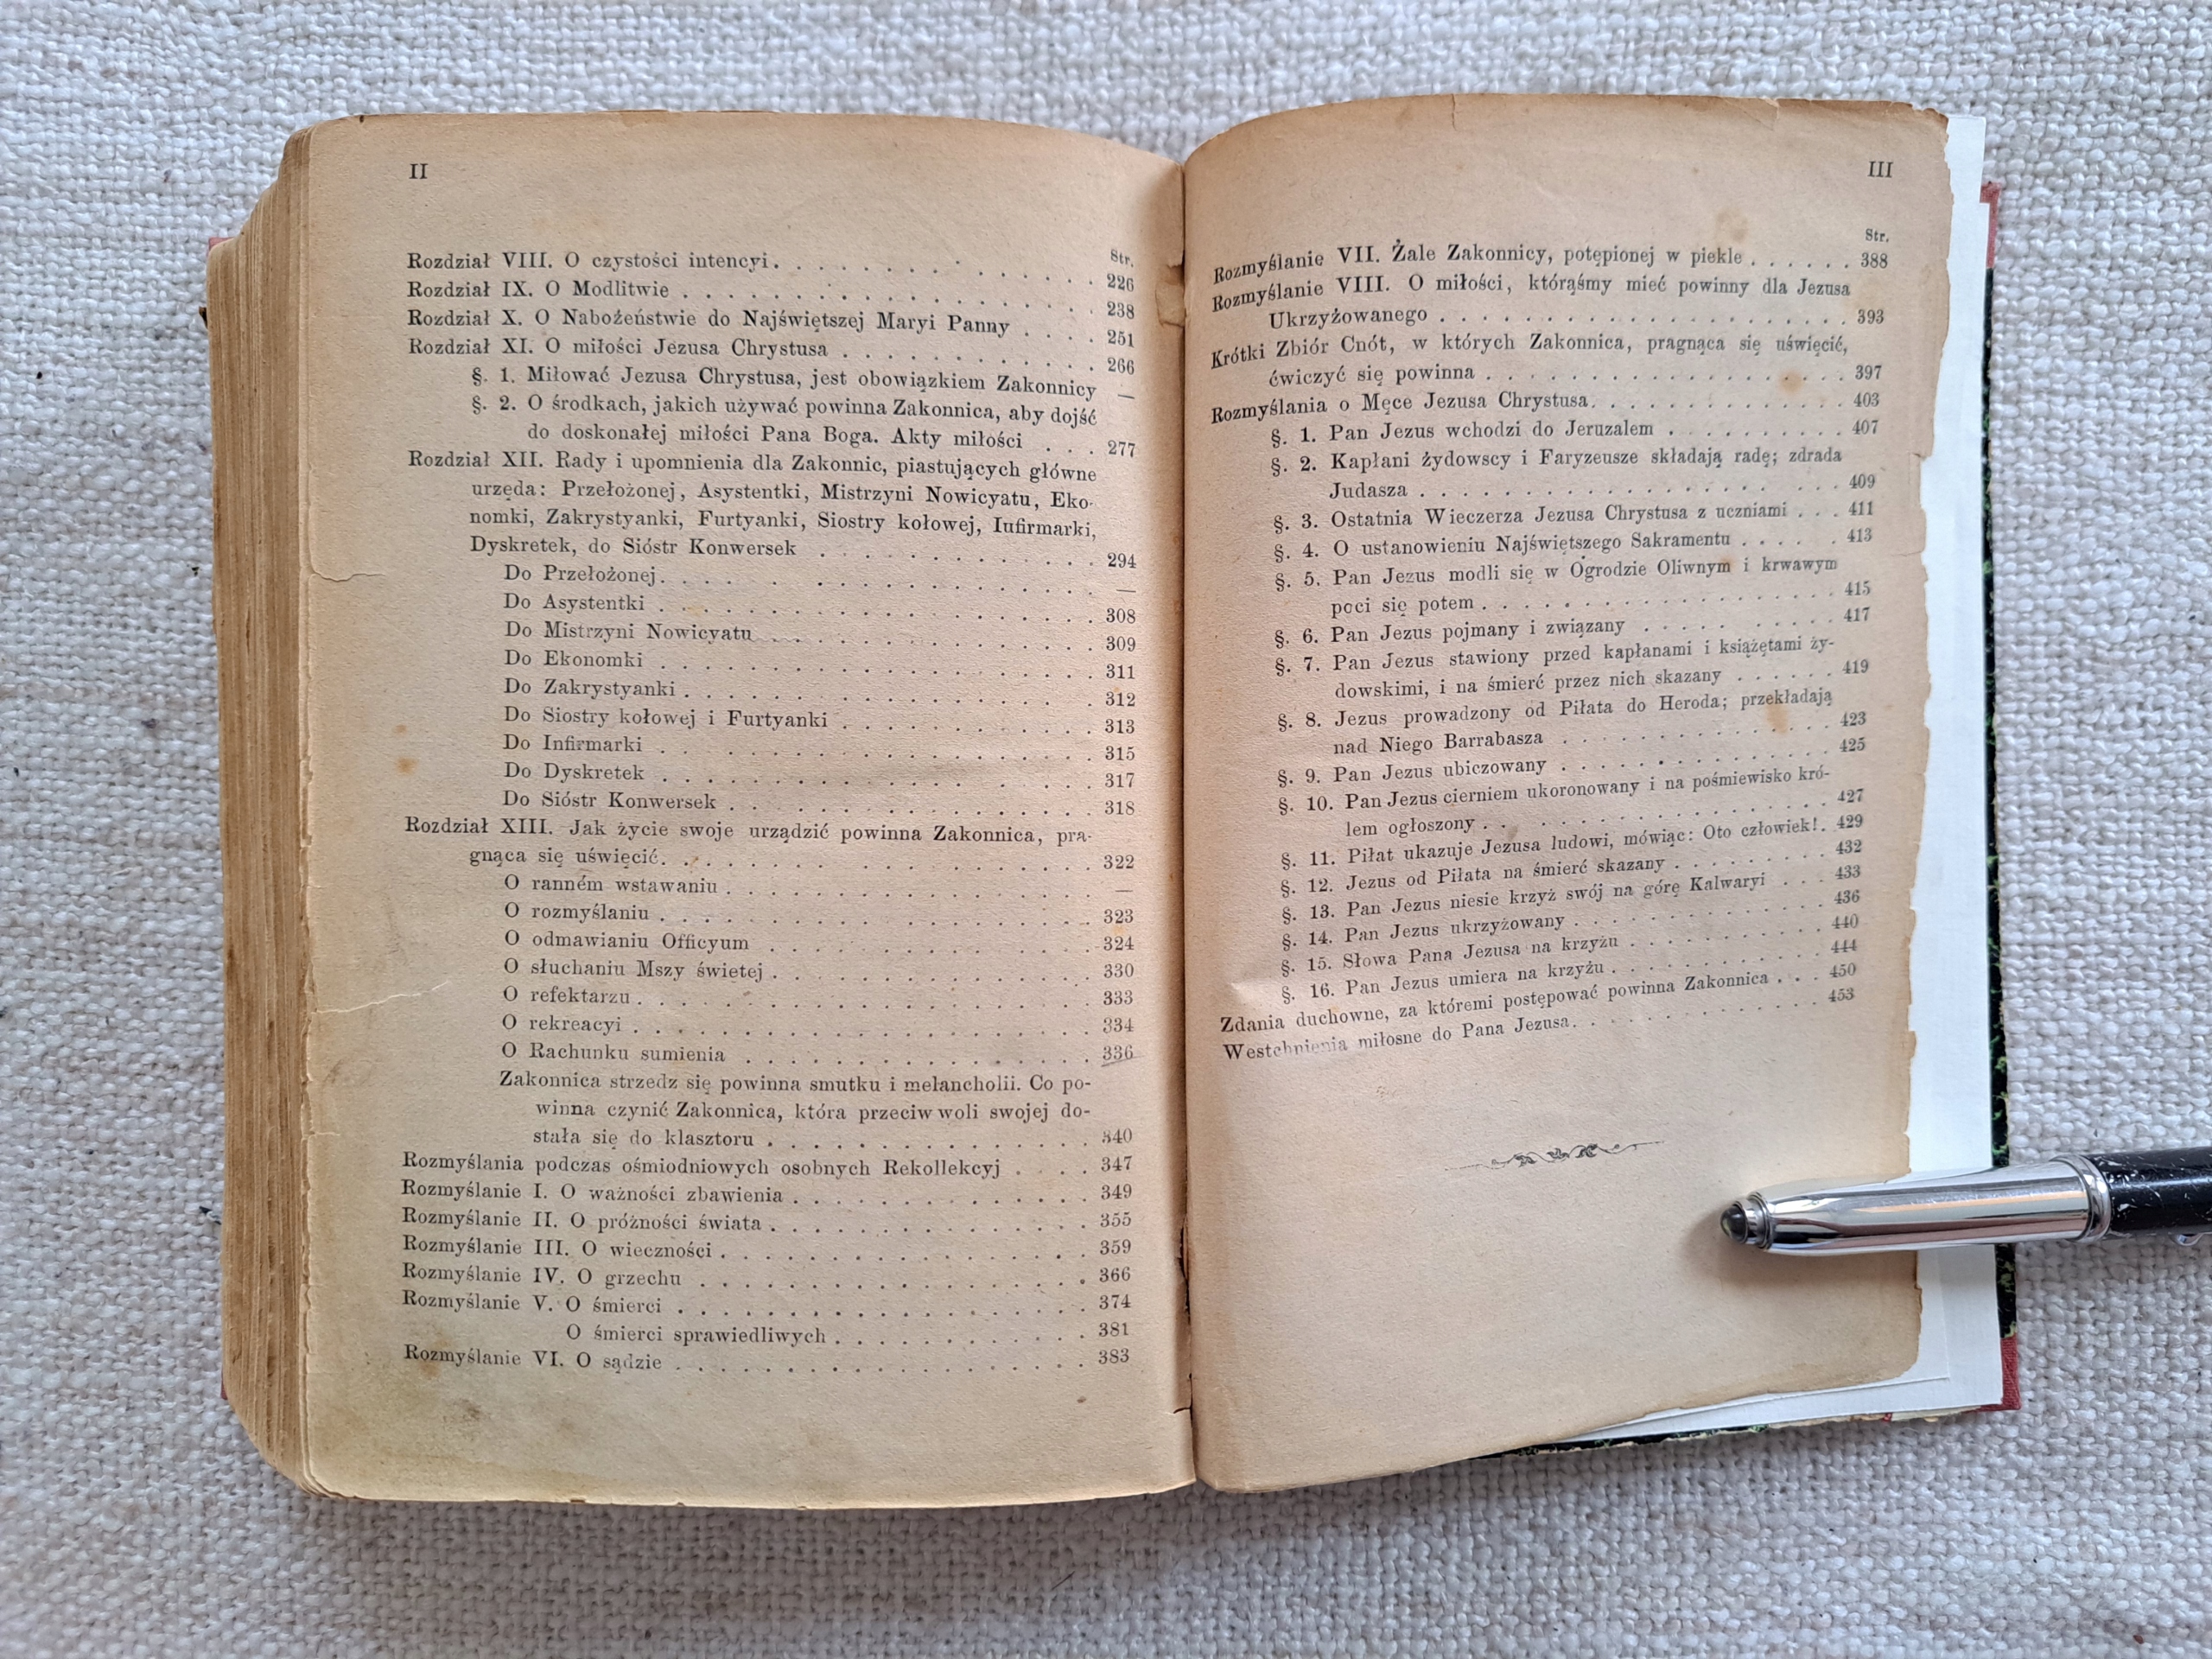 II
Str.
Rozdział VIII. O czystości intencyi . . . . . . . . . . . . 226
Rozdział IX. O Modlitwie . . . . . . . . . . . . . . . . 238
Rozdział X. O Nabożeństwie do Najświętszej Maryi Panny . . . . 251
Rozdział XI. O miłości Jezusa Chrystusa . . . . . . . . . . 266
§. 1. Miłować Jezusa Chrystusa, jest obowiązkiem Zakonnicy —
§. 2. O środkach, jakich używać powinna Zakonnica, aby dojść
do doskonałej miłości Pana Boga. Akty miłości . . . 277
Rozdział XII. Rady i upomnienia dla Zakonnic, piastujących główne
urzęda: Przełożonej, Asystentki, Mistrzyni Nowicyatu, Eko-
nomki, Zakrystyanki, Furtyanki, Siostry kołowej, Infirmarki,
Dyskretek, do Sióstr Konwersek . . . . . . . . . . . 294
Do Przełożonej . . . . . . . . . . . . . . . . —
Do Asystentki . . . . . . . . . . . . . . . . 308
Do Mistrzyni Nowicyatu . . . . . . . . . . . . 309
Do Ekonomki . . . . . . . . . . . . . . . . 311
Do Zakrystyanki . . . . . . . . . . . . . . . 312
Do Siostry kołowej i Furtyanki . . . . . . . . . . 313
Do Infirmarki . . . . . . . . . . . . . . . . 315
Do Dyskretek . . . . . . . . . . . . . . . . 317
Do Sióstr Konwersek . . . . . . . . . . . . . . 318
Rozdział XIII. Jak życie swoje urządzić powinna Zakonnica, pra-
gnąca się uświęcić . . . . . . . . . . . . . . . . 322
O ranném wstawaniu . . . . . . . . . . . . . . —
O rozmyślaniu . . . . . . . . . . . . . . . . 323
O odmawianiu Officyum . . . . . . . . . . . . . 324
O słuchaniu Mszy świetej . . . . . . . . . . . . . 330
O refektarzu . . . . . . . . . . . . . . . . . 333
O rekreacyi . . . . . . . . . . . . . . . . . 334
O Rachunku sumienia . . . . . . . . . . . . . . 336
Zakonnica strzedz się powinna smutku i melancholii. Co po-
winna czynić Zakonnica, która przeciw woli swojej do-
stała się do klasztoru . . . . . . . . . . . . . 340
Rozmyślania podczas ośmiodniowych osobnych Rekollekcyj . . . . 347
Rozmyślanie I. O ważności zbawienia . . . . . . . . . . . . 349
Rozmyślanie II. O próżności świata . . . . . . . . . . . . . 355
Rozmyślanie III. O wieczności . . . . . . . . . . . . . . . 359
Rozmyślanie IV. O grzechu . . . . . . . . . . . . . . . . 366
Rozmyślanie V. O śmierci . . . . . . . . . . . . . . . . . 374
O śmierci sprawiedliwych . . . . . . . . . . . . 381
Rozmyślanie VI. O sądzie . . . . . . . . . . . . . . . . . 383
III
Str.
Rozmyślanie VII. Żale Zakonnicy, potępionej w piekle . . . . . . 388
Rozmyślanie VIII. O miłości, którąśmy mieć powinny dla Jezusa
Ukrzyżowanego . . . . . . . . . . . . . . . . . . 393
Krótki Zbiór Cnót, w których Zakonnica, pragnąca się uświęcić,
ćwiczyć się powinna . . . . . . . . . . . . . . . . 397
Rozmyślania o Męce Jezusa Chrystusa . . . . . . . . . . . . 403
§. 1. Pan Jezus wchodzi do Jeruzalem . . . . . . . . . 407
§. 2. Kapłani żydowscy i Faryzeusze składają radę; zdrada
Judasza . . . . . . . . . . . . . . . . . . 409
§. 3. Ostatnia Wieczerza Jezusa Chrystusa z uczniami . . . 411
§. 4. O ustanowieniu Najświętszego Sakramentu . . . . . 413
§. 5. Pan Jezus modli się w Ogrodzie Oliwnym i krwawym
poci się potem . . . . . . . . . . . . . . . 415
§. 6. Pan Jezus pojmany i związany . . . . . . . . . 417
§. 7. Pan Jezus stawiony przed kapłanami i książętami ży-
dowskimi, i na śmierć przez nich skazany . . . . . . 419
§. 8. Jezus prowadzony od Piłata do Heroda; przekładają
nad Niego Barrabasza . . . . . . . . . . . . 423
§. 9. Pan Jezus ubiczowany . . . . . . . . . . . . 425
§. 10. Pan Jezus cierniem ukoronowany i na pośmiewisko kró-
lem ogłoszony . . . . . . . . . . . . . . . 427
§. 11. Piłat ukazuje Jezusa ludowi, mówiąc: Oto człowiek! . 429
§. 12. Jezus od Piłata na śmierć skazany . . . . . . . . 432
§. 13. Pan Jezus niesie krzyż swój na górę Kalwaryi . . . 433
§. 14. Pan Jezus ukrzyżowany . . . . . . . . . . . . 436
§. 15. Słowa Pana Jezusa na krzyżu . . . . . . . . . . 440
§. 16. Pan Jezus umiera na krzyżu . . . . . . . . . . . 444
Zdania duchowne, za któremi postępować powinna Zakonnica . . . 450
Westchnienia miłosne do Pana Jezusa . . . . . . . . . . . . 453